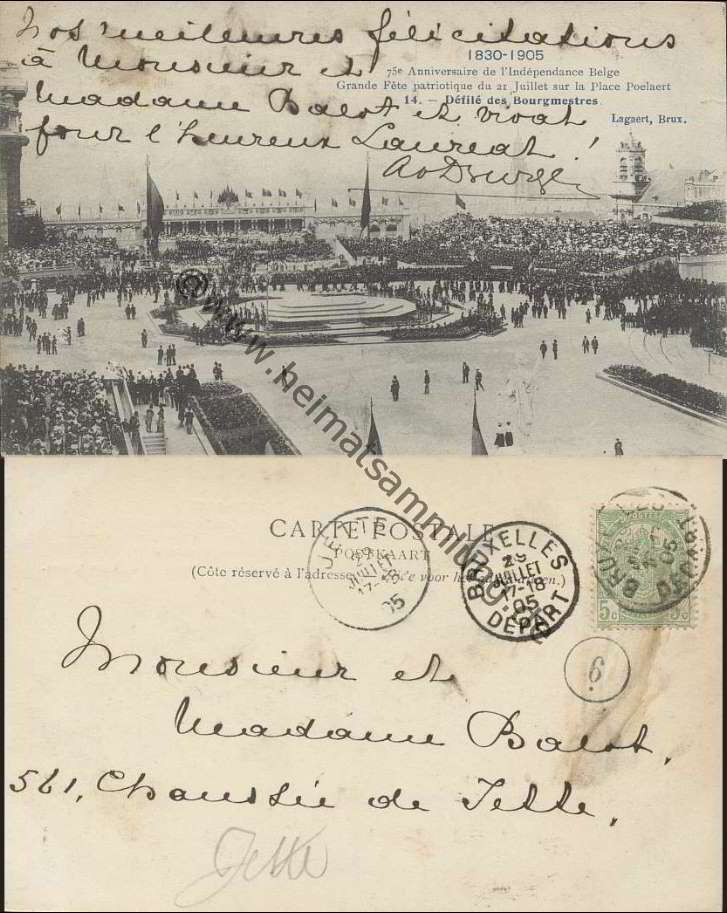 Nos meilleures félicitations
à Monsieur et
Madame Baest et vivat
pour l'heureux Lauréat !
1830-1905
75e Anniversaire de l'Indépendance Belge
Grande Fête patriotique du 21 Juillet sur la Place Poelaert
14. - Défilé des Bourgmestres.
Lagaert, Brux.
©www.heimatsammlung.de
CARTE POSTALE
POSTKAART
(Côte réservé à l'adresse
JETTE
29
JUILLET
17-18
05
BRUXELLES
29
JUILLET
17-18
05
DEPART
BRUXELLES
05
DEPART
5c 5c
6
Monsieur et
Madame Baest,
561, Chaussée de Jette,
Jette